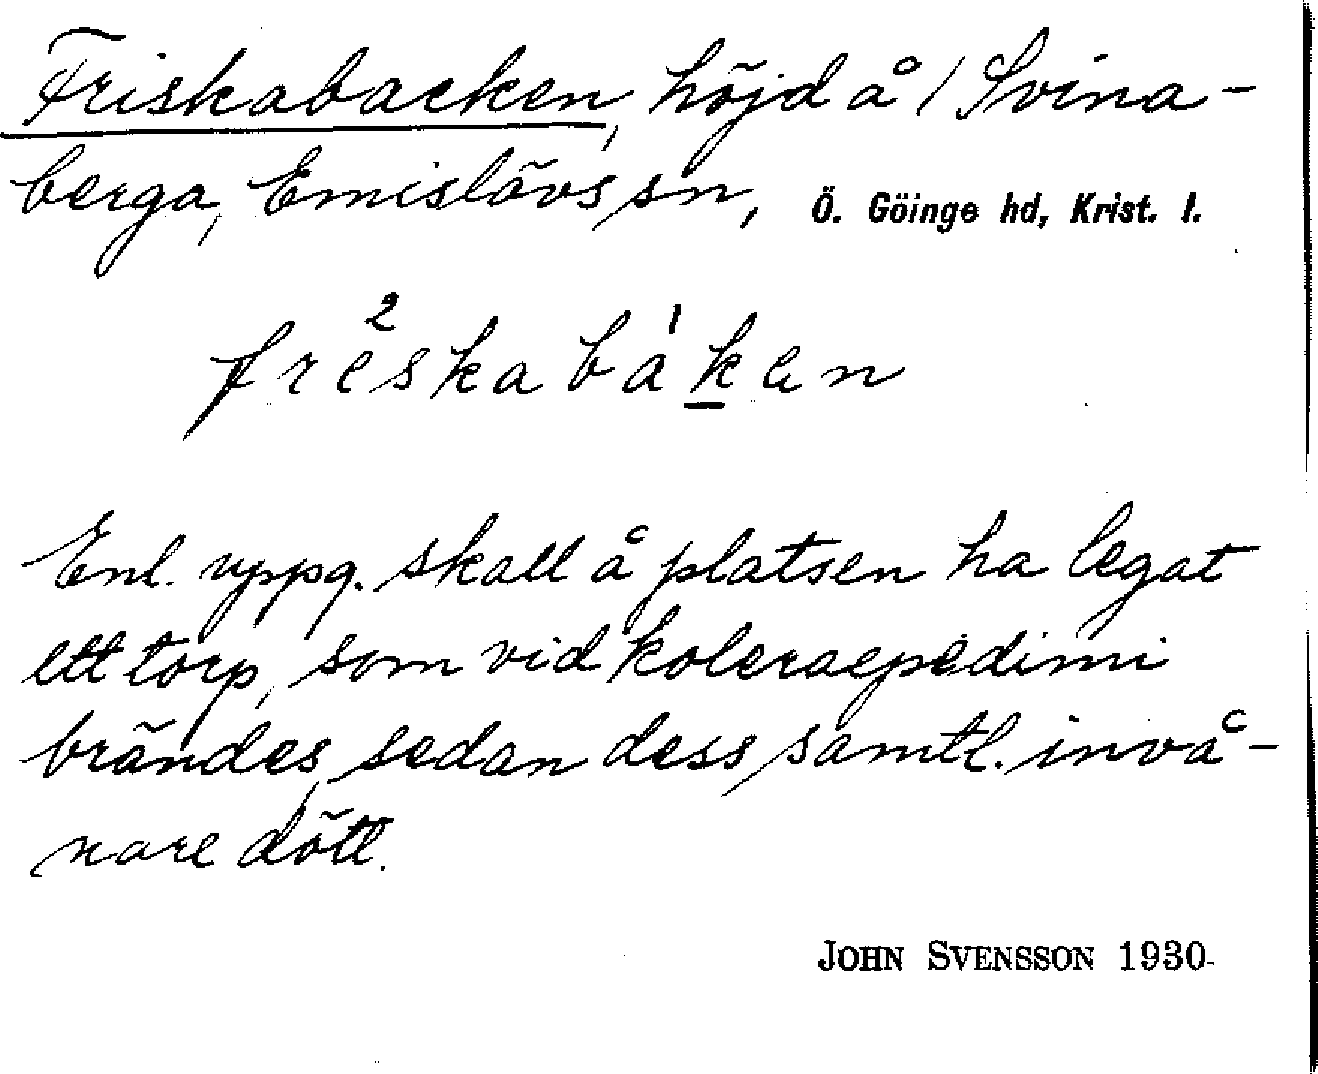 Friskabacken, höjd å / Svina-
berga, Emislövs sn, Ö. Göinge hd, Krist. l.
fre²skaba¹ken
Enl. uppg. skall å platsen ha legat
ett torp, som vid koleraepedimi
brändes, sedan dess samtl. invå-
nare dött.
JOHN SVENSSON 1930